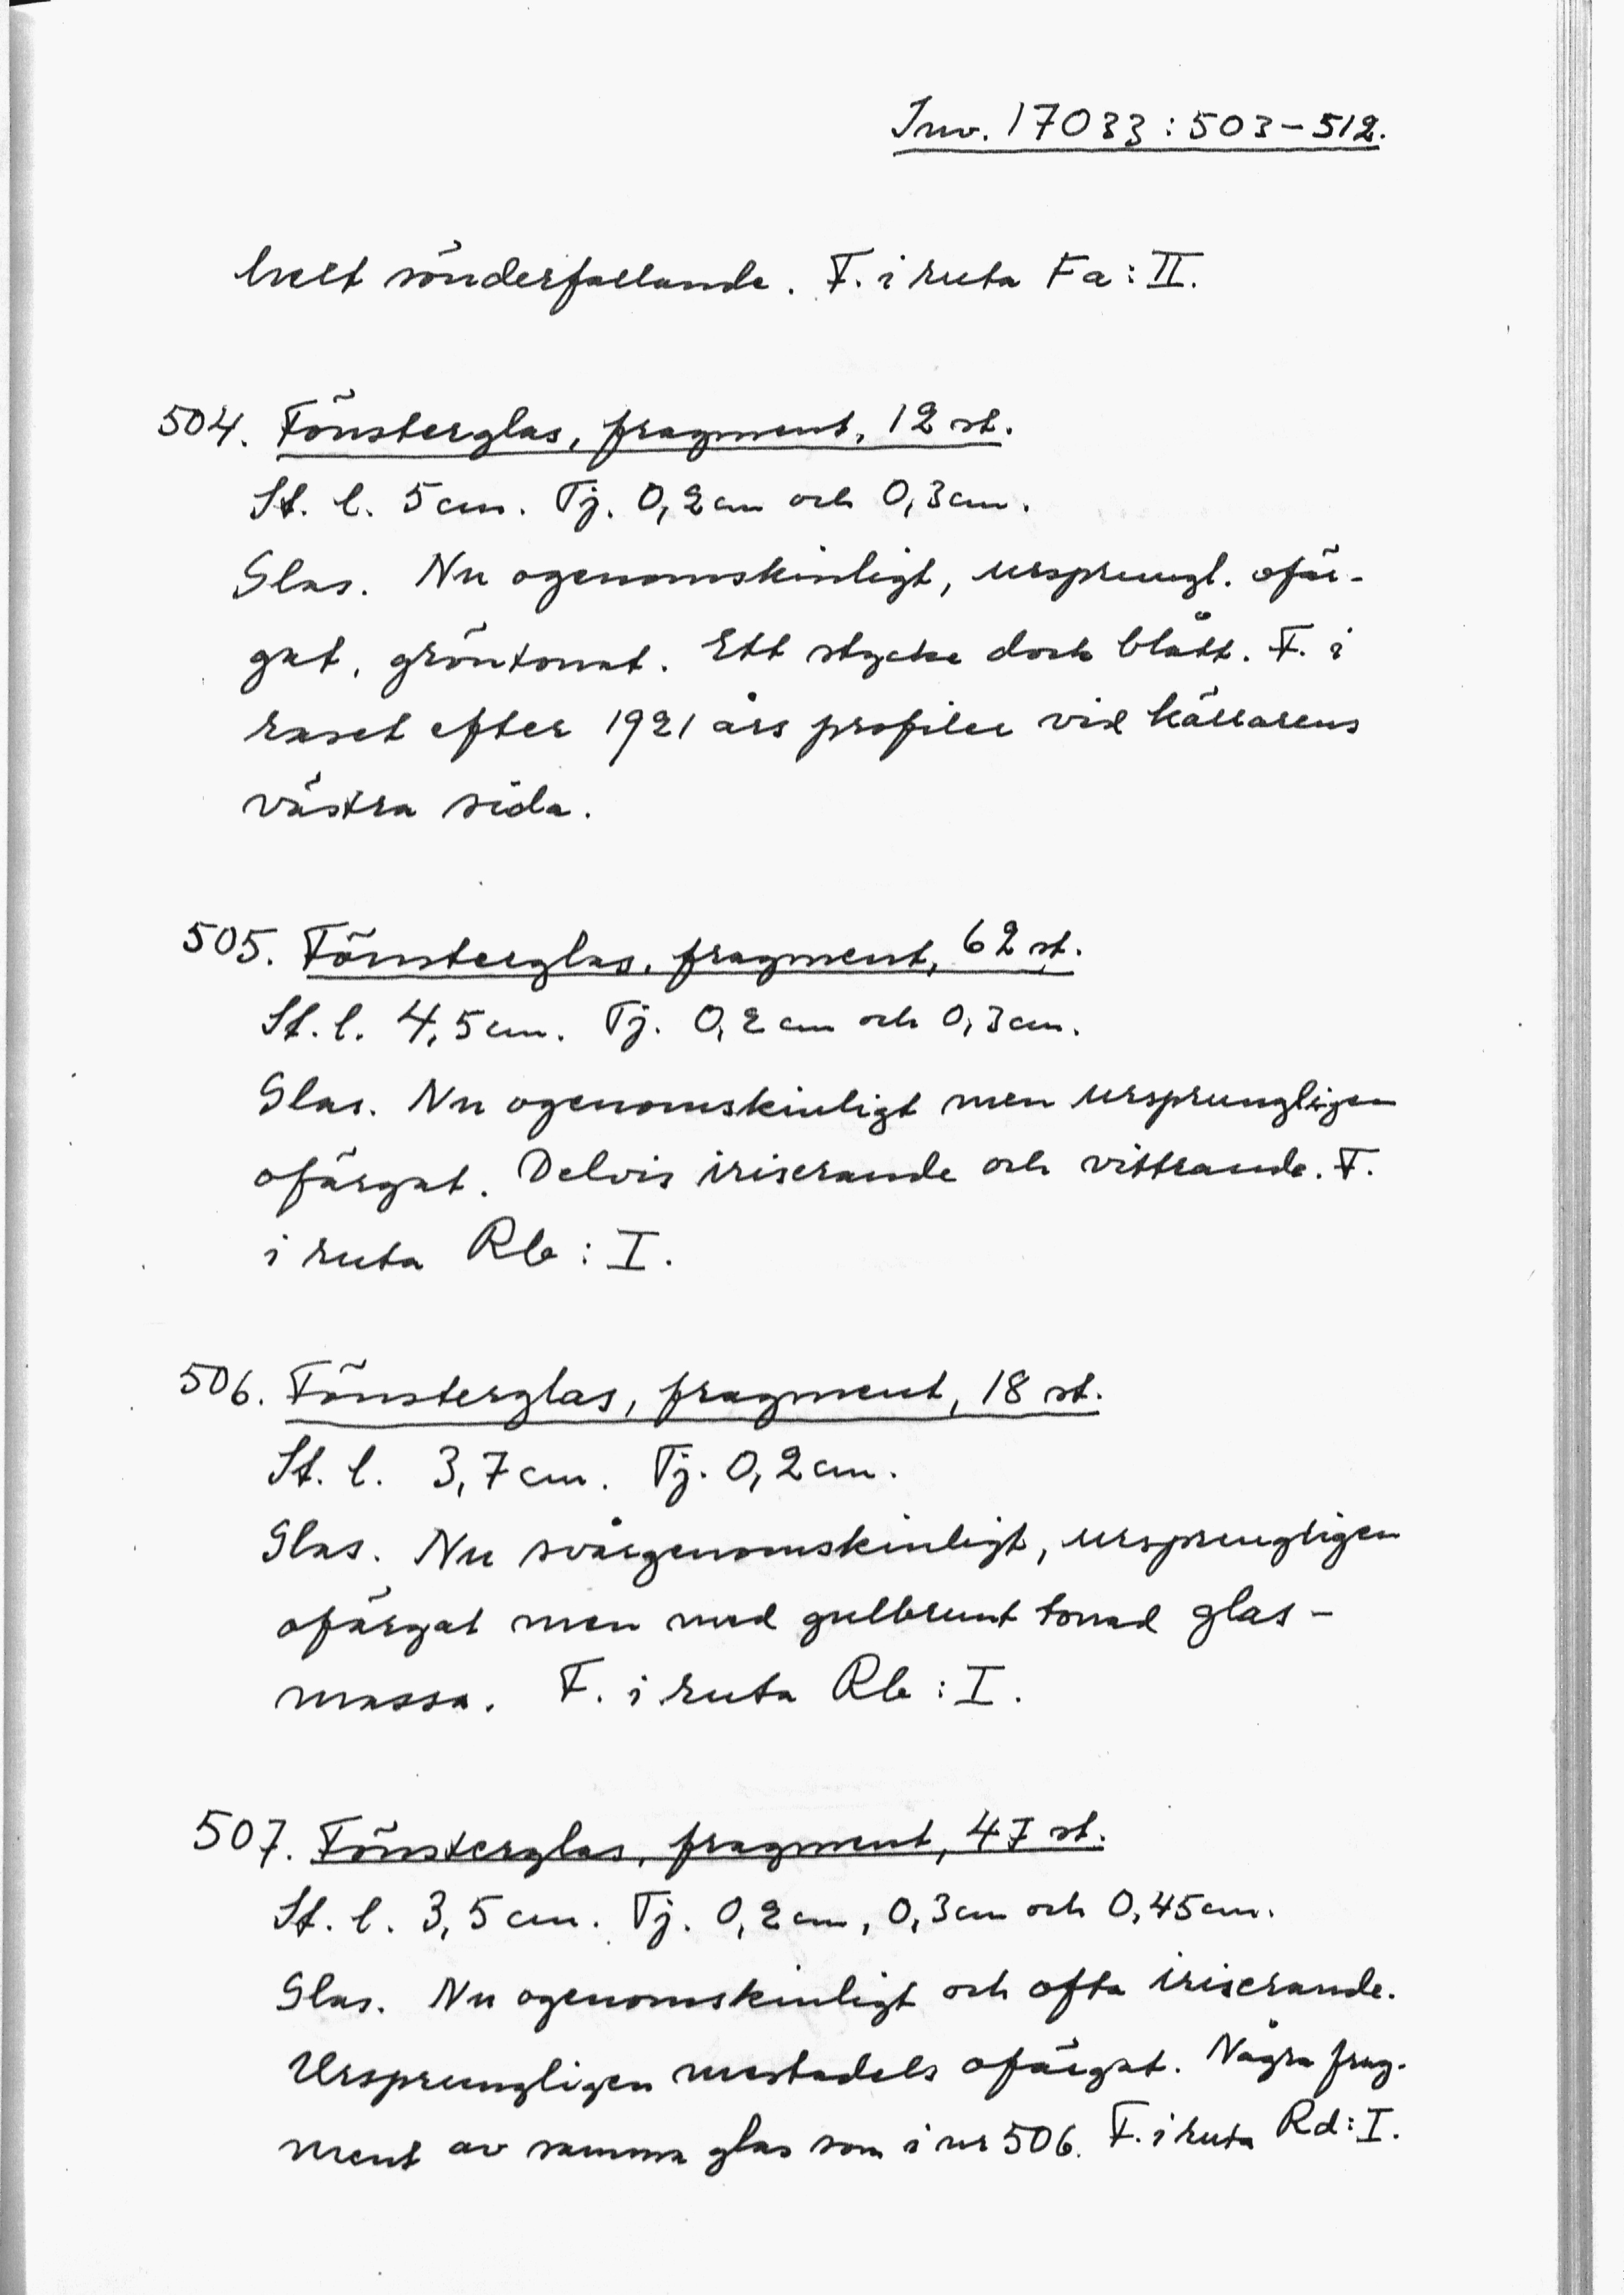 Inv. 17033:503–512.
helt sönderfallande. F. i ruta Fa: II.
504. Fönsterglas, fragment, 12 st.
St. l. 5 cm. Tj. 0,2 cm och 0,3 cm.
Glas. Nu ogenomskinligt, ursprungl. ofär-
gat, gröntonat. Ett stycke dock blått. F. i
raset efter 1921 års profiler vid källarens
västra sida.
505. Fönsterglas, fragment, 62 st.
St. l. 4,5 cm. Tj. 0,2 cm och 0,3 cm.
Glas. Nu ogenomskinligt men ursprungligen
ofärgat. Delvis iriserande och vittrande. F.
i ruta Rb: I.
506. Fönsterglas, fragment, 18 st.
St. l. 3,7 cm. Tj. 0,2 cm.
Glas. Nu svårgenomskinligt, ursprungligen
ofärgat men med gulbrunt tonad glas-
massa. F. i ruta Rb: I.
507. Fönsterglas, fragment, 47 st.
St. l. 3,5 cm. Tj. 0,2 cm, 0,3 cm och 0,45 cm.
Glas. Nu ogenomskinligt och ofta iriserande.
Ursprungligen mestadels ofärgat. Några frag-
ment av samma glas som i nr 506. F. i ruta Rd: I.